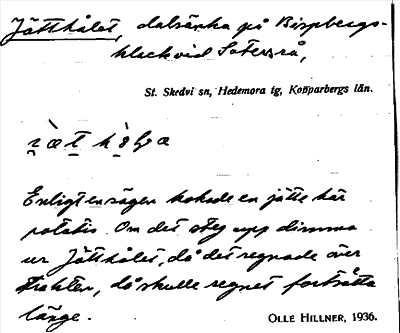 Jätthålet, dalsänka på Bispbergs-
klack vid Säterså,
St. Skedvi sn, Hedemora tg, Kopparbergs län.
Enligt en sägen kokade en jätte här
potatis. Om det steg upp dimma
ur Jätthålet, då det regnade över
trakten, då skulle regnet fortsätta
länge.
OLLE HILLNER, 1936.